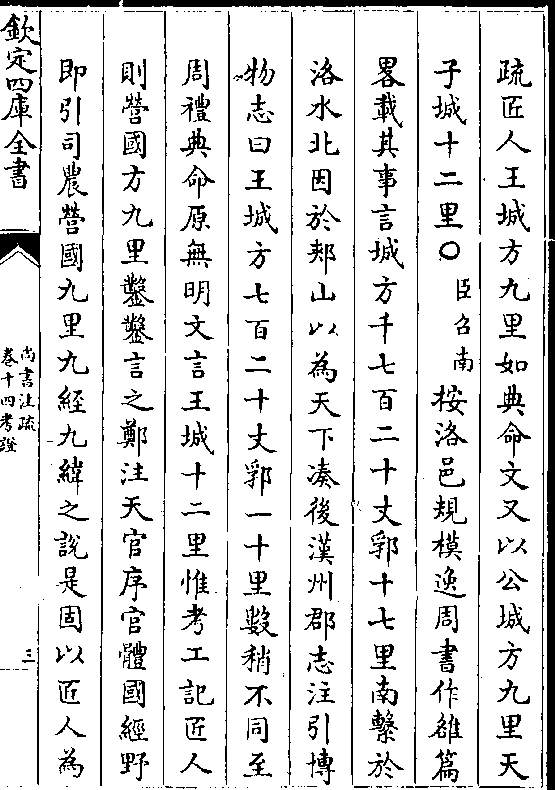 疏匠人王城方九里如典命文又以公城方九里天
子城十二里〇臣召南桉洛邑規模逸周書作雒篇
畧載其事言城方千七百二十丈郛十七里南繫於
洛水北因於郟山以為天下凑後漢州郡志注引博
物志曰王城方七百二十丈郛一十里數稍不同至
周禮典命原無明文言王城十二里惟考工記匠人
則營國方九里鑿鑿言之鄭注天官序官體國經野
即引司農營國九里九經九緯之說是固以匠人為
欽定四庫全書
尚書注疏
卷十四考證
三